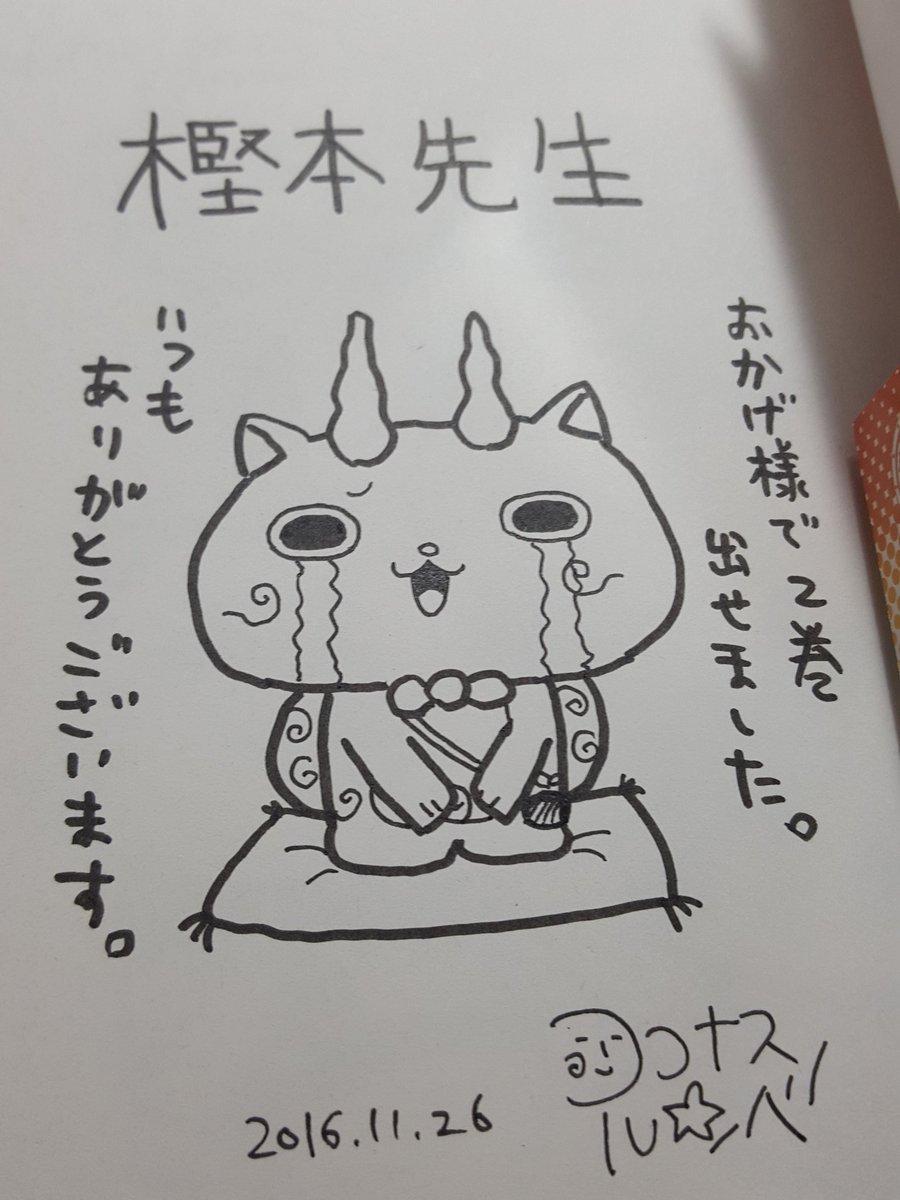 樫本先生
おかげ様で2巻
出せました。
いつも
ありがとうございます。
2016.11.26
コナス